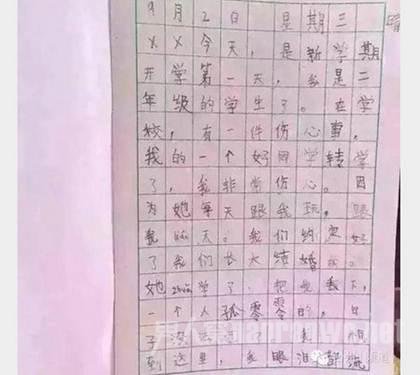 9月2日 星期三 晴
××今天,是新学期
开学第一天,我是二
年级的学生了。在学
校,有一件伤心事,
我的一个好同学转学
了,我非常伤心。因
为她每天跟我玩,跟
我聊天。我们约定好
了我们长大结婚
她zhuǎn学了,把我
一个人孤零零的,日
子没
到这里,我眼泪都流